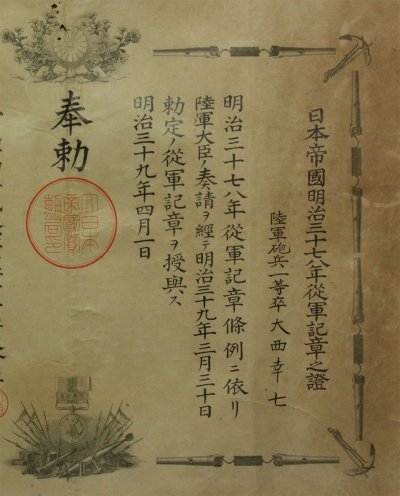 日本帝國明治三十七八年從軍記章之證
陸軍砲兵一等卒大西幸七
明治三十七八年從軍記章條例ニ依リ
陸軍大臣ノ奏請ヲ經テ明治三十九年三月三十日
勅定ノ從軍記章ヲ授與ス
明治三十九年四月一日
奉勅